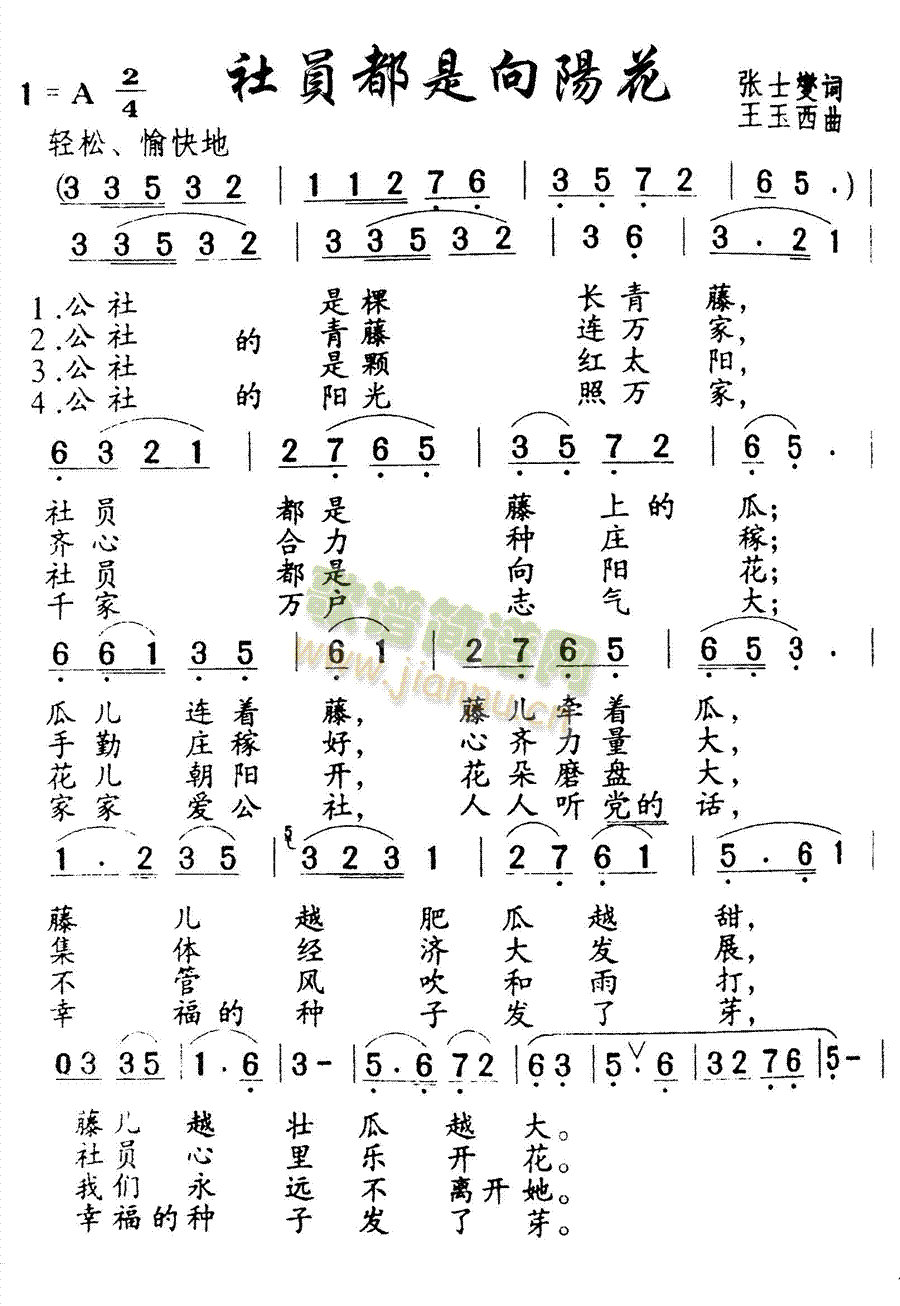 社員都是向陽花
1=A 2/4
张士燮词
王玉西曲
轻松、愉快地
(3 3 5 3 2 | 1 1 2 7 6 | 3 5 7 2 | 6 5 .) |
3 3 5 3 2 | 3 3 5 3 2 | 3 6 | 3 . 2 1 |
1.公社 是棵 长青藤,
2.公社的青藤 连万家,
3.公社 是颗 红太阳,
4.公社的阳光 照万家,
6 3 2 1 | 2 7 6 5 | 3 5 7 2 | 6 5 . |
社员 都是 藤上的瓜;
齐心 合力 种庄稼;
社员 都是 向阳花;
千家 万户 志气大;
歌谱简谱网
www.jianpu.cn
6 6 1 3 5 | 6 1 | 2 7 6 5 | 6 5 3 . |
瓜儿连着藤, 藤儿牵着瓜,
手勤庄稼好, 心齐力量大,
花儿朝阳开, 花朵磨盘大,
家家爱公社, 人人听党的话,
1 . 2 3 5 | 5 3 2 3 1 | 2 7 6 1 | 5 . 6 1 |
藤儿越肥瓜越甜,
集体经济大发展,
不管风吹和雨打,
幸福的种子发了芽,
0 3 3 5 | 1 . 6 | 3 - | 5 . 6 7 2 | 6 3 | 5 . ∨ 6 | 3 2 7 6 | 5 - |
藤儿越壮瓜越大。
社员心里乐开花。
我们永远不离开她。
幸福的种子发了芽。